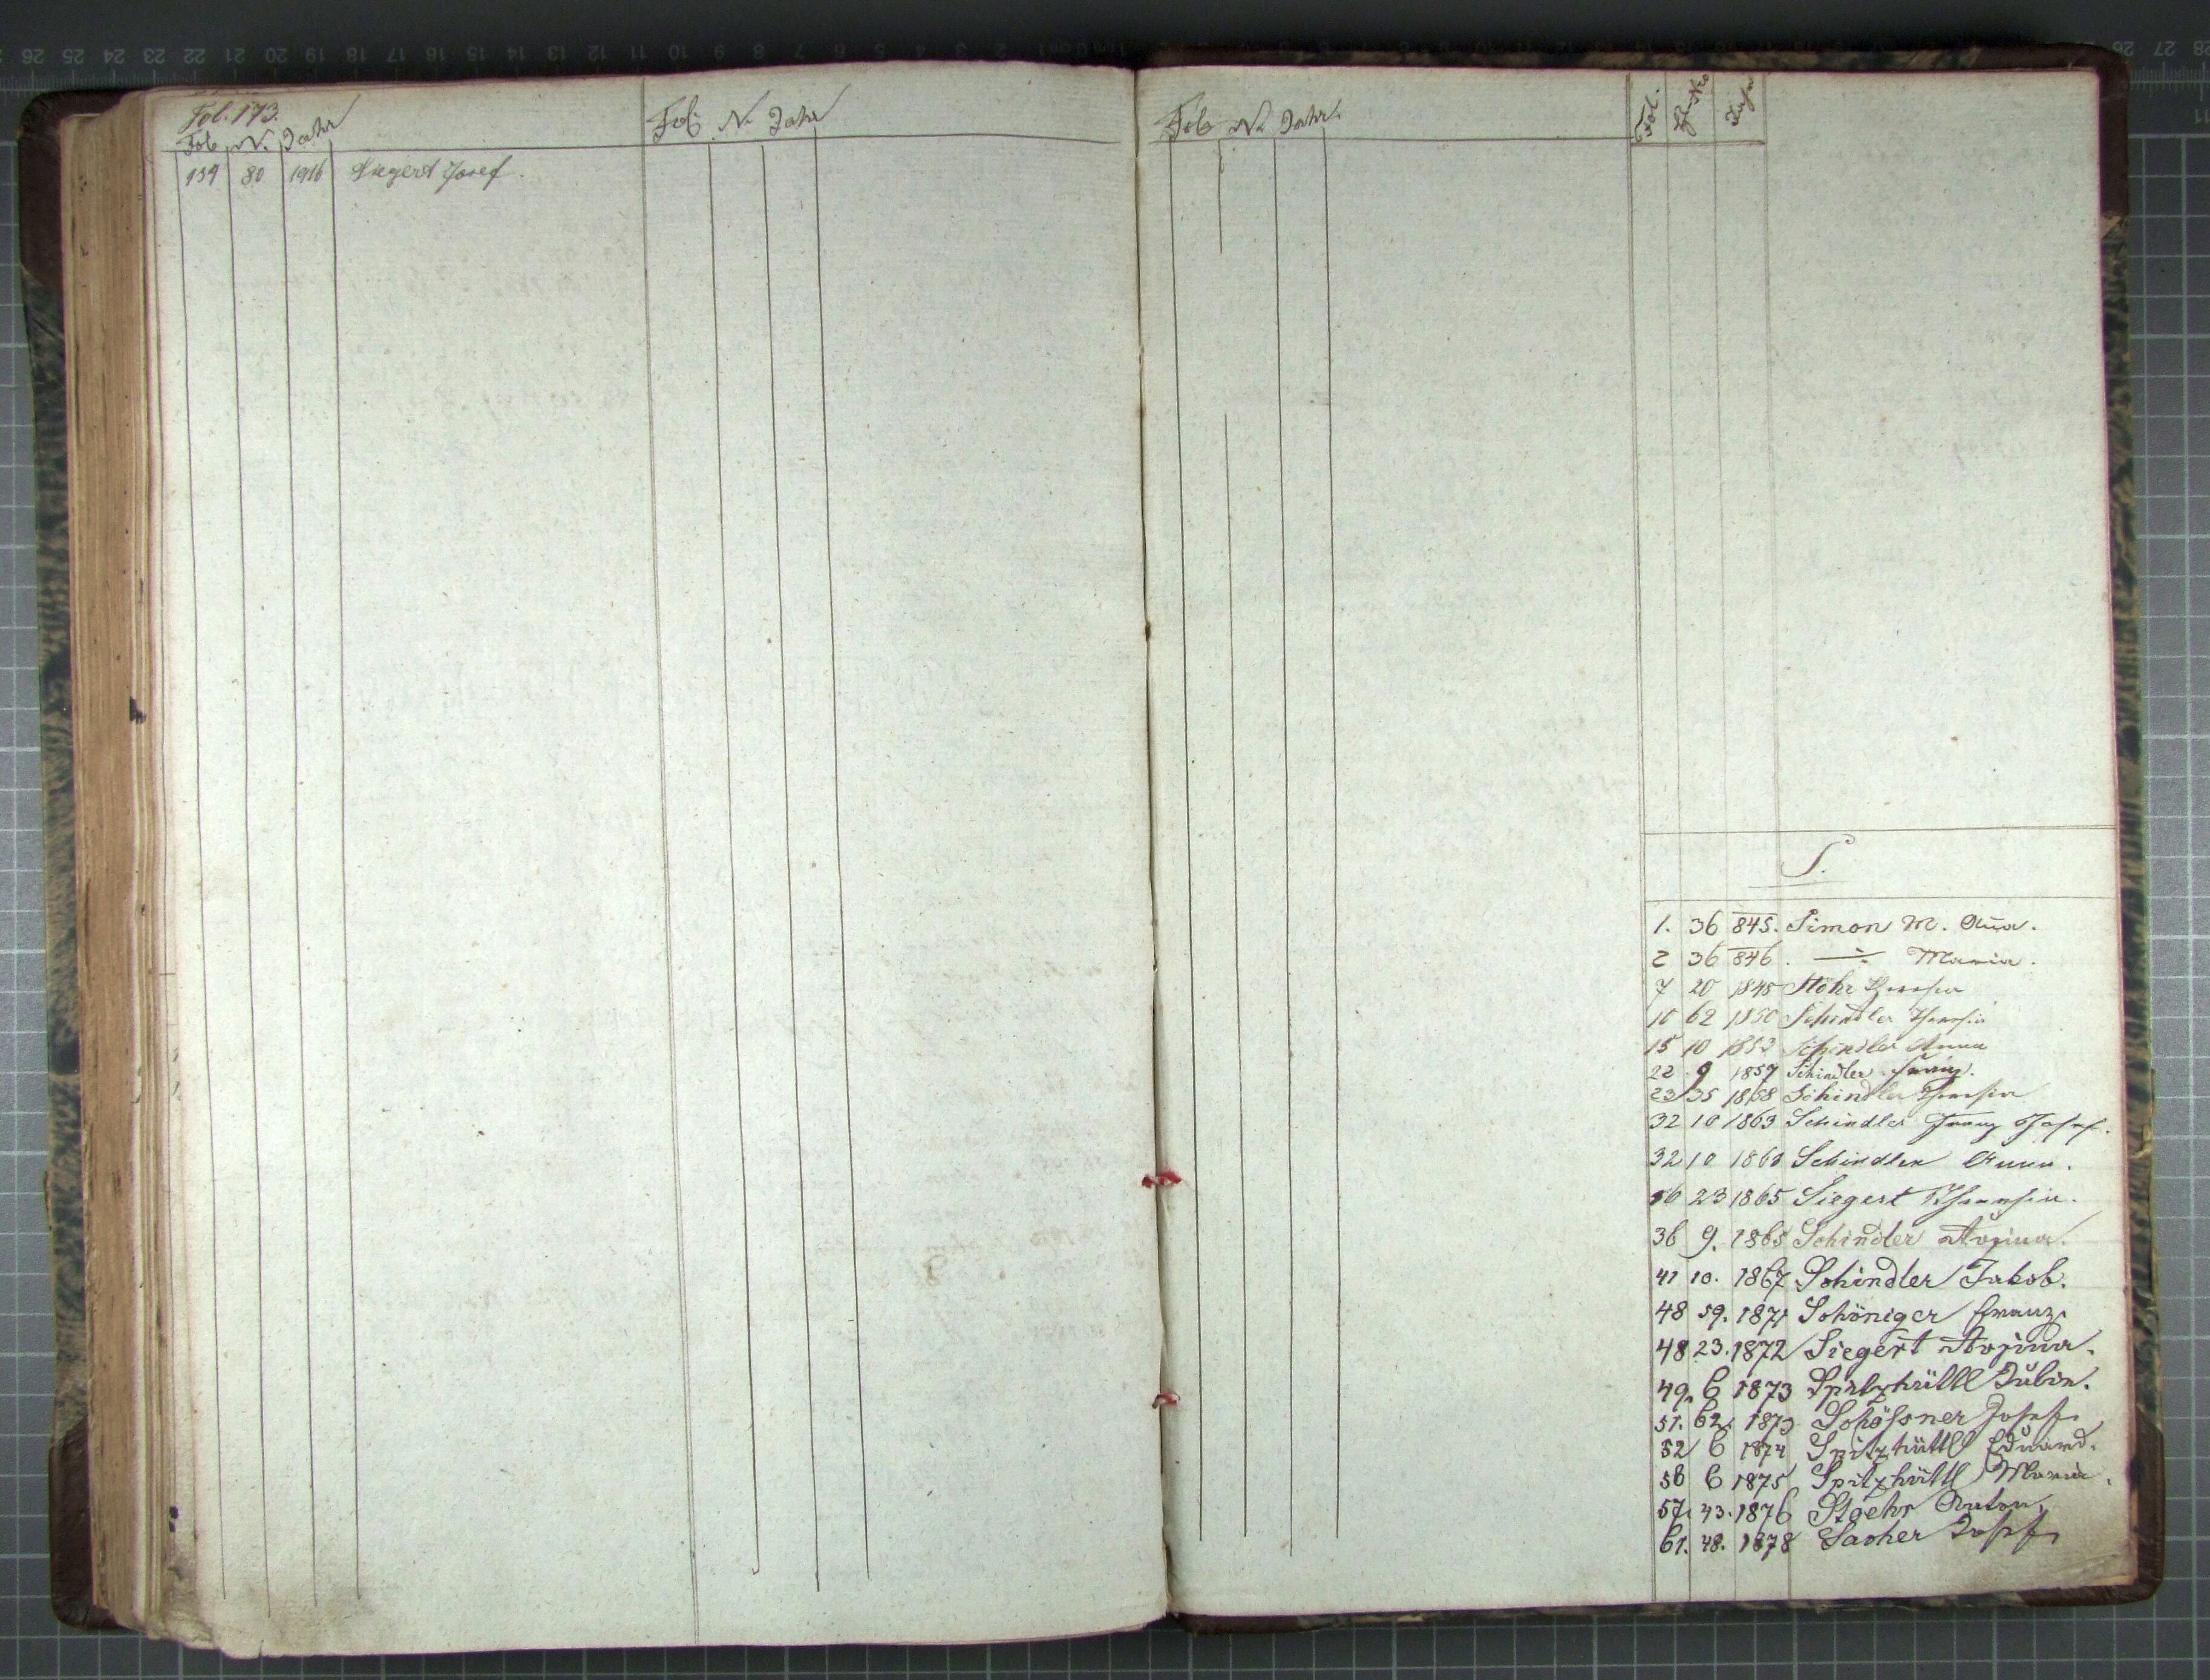 Fol. 173.
Fol. N. Jahr
139 80 1916 Siegert Josef.
Fol. N. Jahr
Fol. N. Jahr.
Fol. Hs-Nro Jahr
S.
1. 36 845. Simon M. Ana.
2 36 846. –:– Maria.
7 20 1848 Stöhr Theresia
10 62 1850 Schindler Theresia
15 10 1853 Schindler Anna
22 9 1857 Schindler Franz.
23 35 1858 Schindler Theresia
32 10 1863 Schindler Franz Josef.
32 10 1863 Schindler Anna.
36 23 1865 Siegert Theresia.
36 9. 1865 Schindler Rosina.
41 10. 1867 Schindler Jakob.
48 59. 1871 Schöniger Franz.
48 23. 1872 Siegert Rosina.
49. 6 1873 Spitzhüttl Julia.
51. 62. 1873 Schössner Josef.
52 6 1874 Spitzhüttl Eduard.
56 6 1875 Spitzhüttl Maria.
57. 43. 1876 Stoehr Anton.
61. 48. 1878 Sacher Josef.